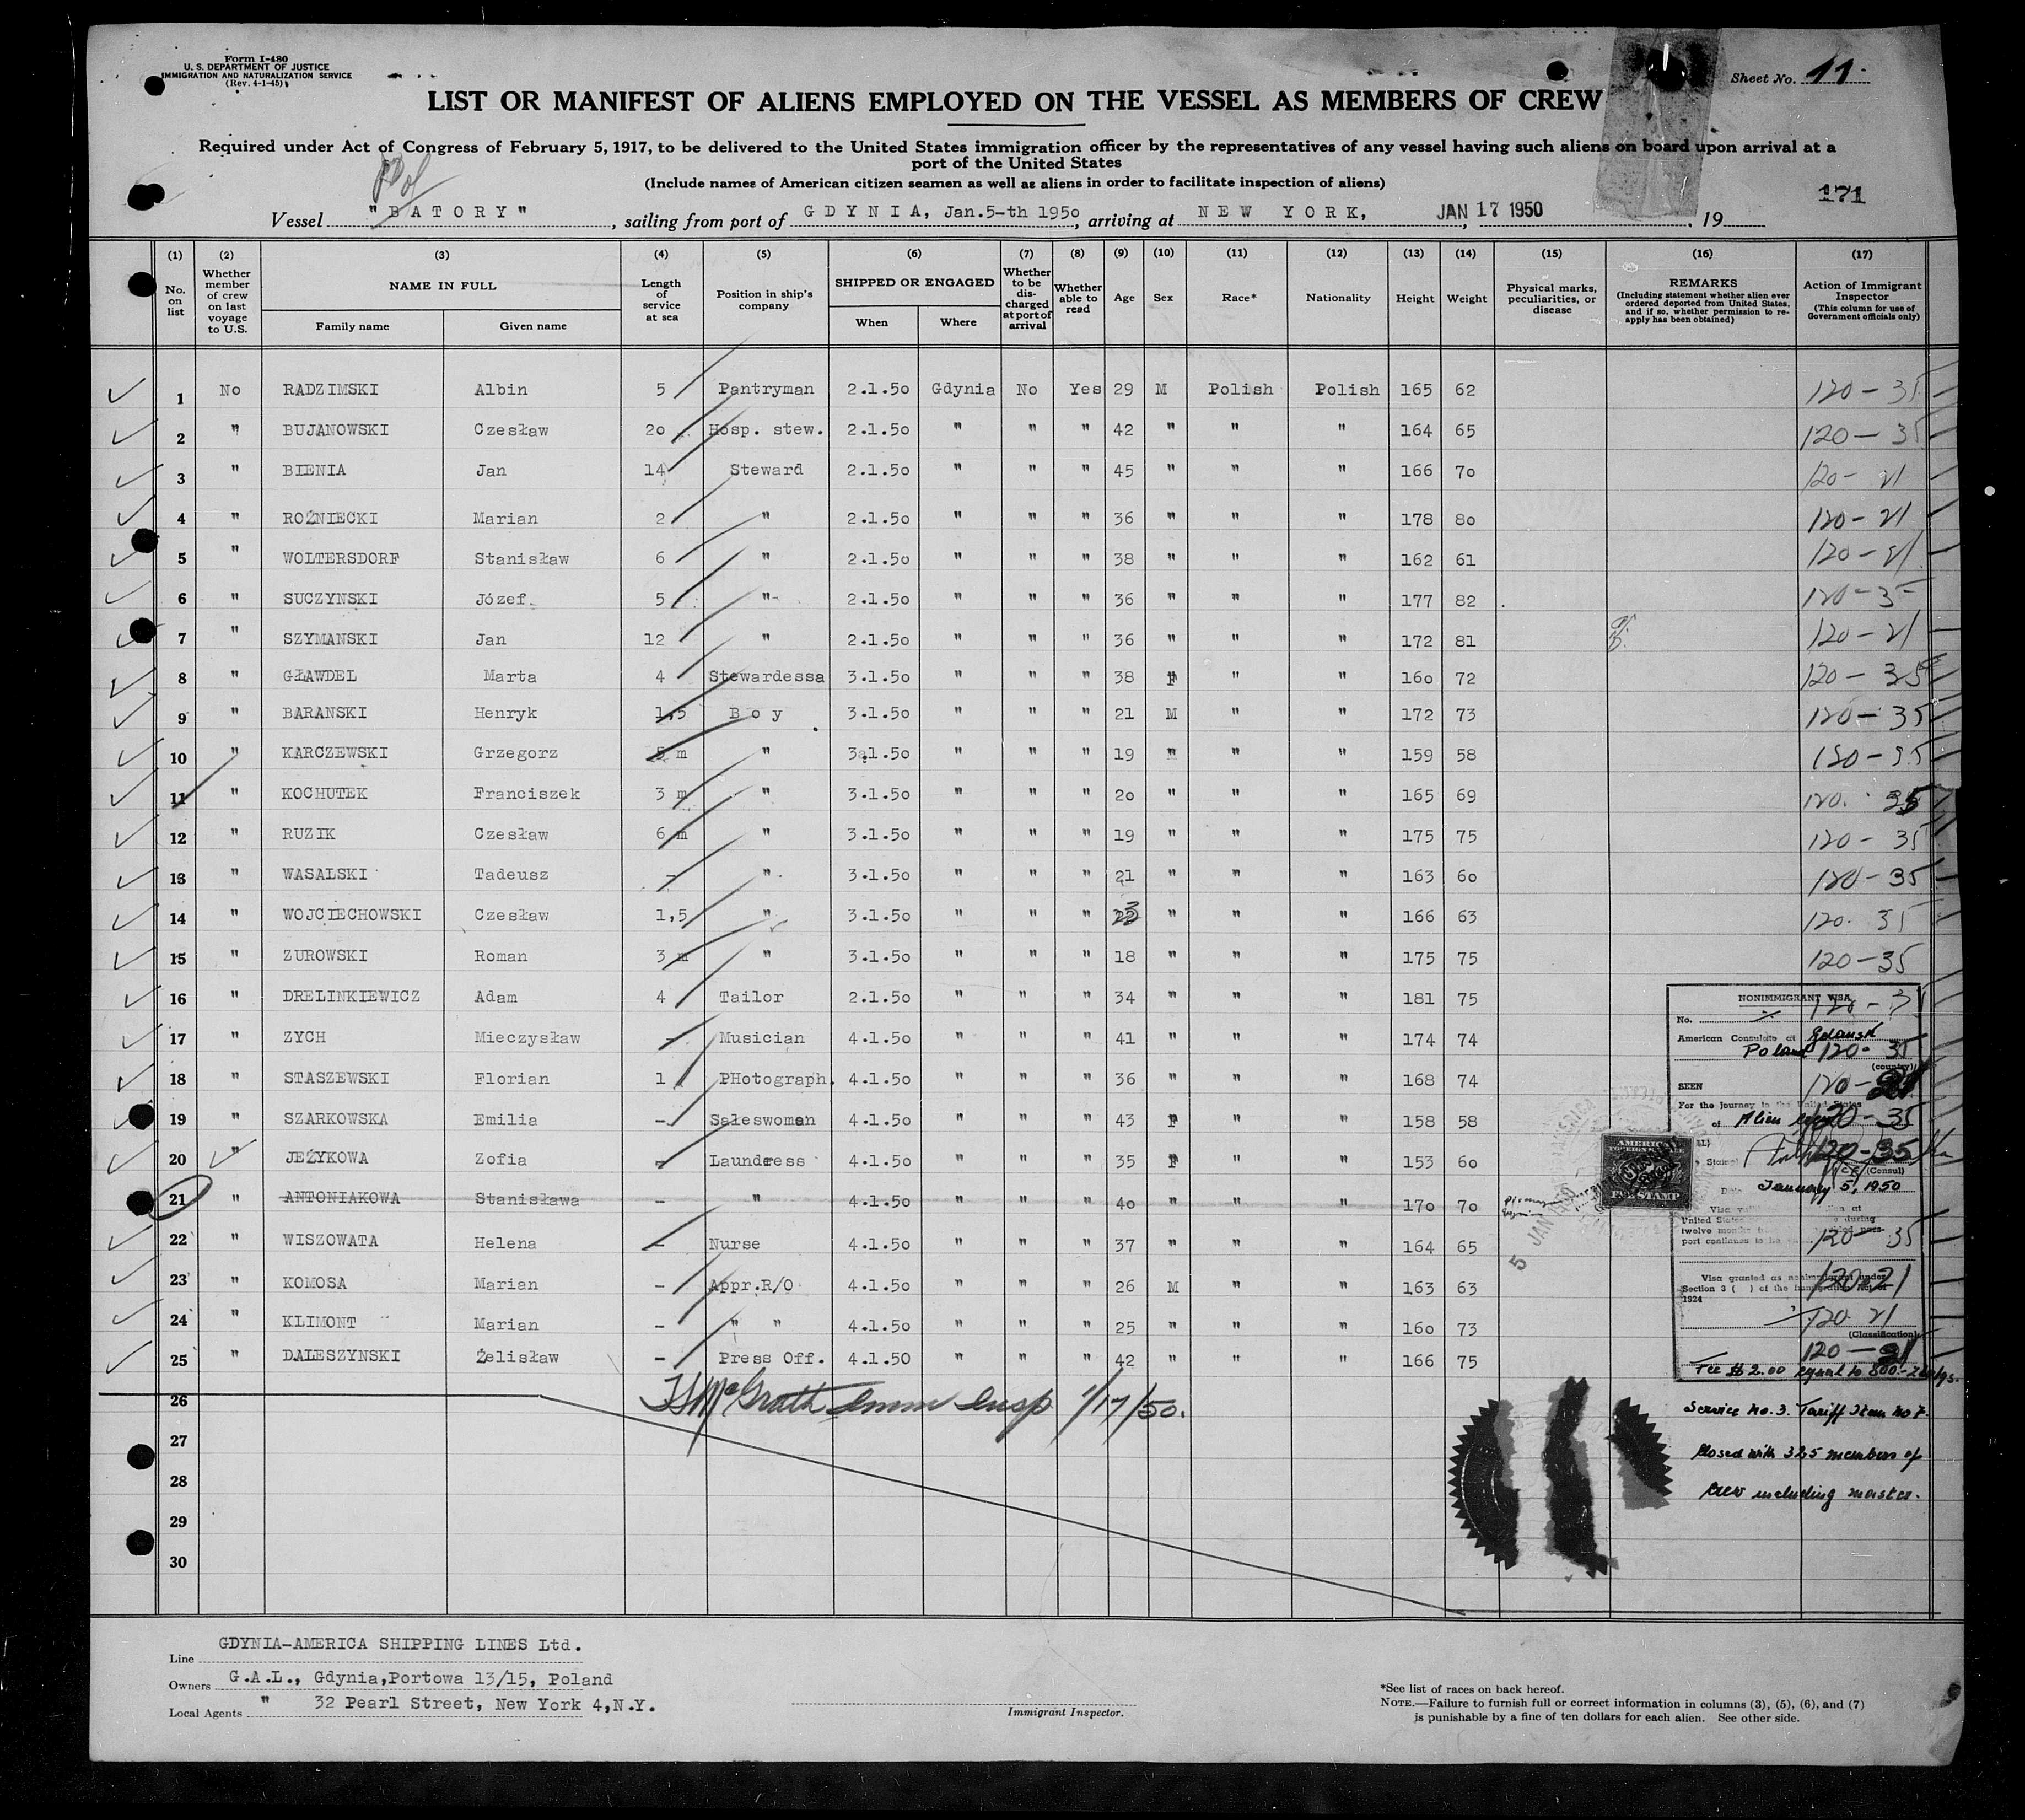 Form I-480
U. S. DEPARTMENT OF JUSTICE
IMMIGRATION AND NATURALIZATION SERVICE
(Rev. 4-1-45)
Sheet No. 11.
LIST OR MANIFEST OF ALIENS EMPLOYED ON THE VESSEL AS MEMBERS OF CREW
Required under Act of Congress of February 5, 1917, to be delivered to the United States immigration officer by the representatives of any vessel having such aliens on board upon arrival at a
port of the United States
(Include names of American citizen seamen as well as aliens in order to facilitate inspection of aliens)
Pol
171
Vessel "BATORY", sailing from port of GDYNIA, Jan.5-th 1950, arriving at NEW YORK, JAN 17 1950, 19
(1) (2) (3) (4) (5) (6) (7) (8) (9) (10) (11) (12) (13) (14) (15) (16) (17)
No. on list
Whether member of crew on last voyage to U.S.
NAME IN FULL
Family name Given name
Length of service at sea
Position in ship's company
SHIPPED OR ENGAGED
When Where
Whether to be discharged at port of arrival
Whether able to read
Age
Sex
Race*
Nationality
Height
Weight
Physical marks, peculiarities, or disease
REMARKS
(Including statement whether alien ever ordered deported from United States, and if so, whether permission to re-apply has been obtained)
Action of Immigrant Inspector
(This column for use of Government officials only)
1 No RADZIMSKI Albin 5 Pantryman 2.1.50 Gdynia No Yes 29 M Polish Polish 165 62 120-35
2 " BUJANOWSKI Czesław 20 Hosp. stew. 2.1.50 " " " 42 " " " 164 65 120-35
3 " BIENIA Jan 14 Steward 2.1.50 " " " 45 " " " 166 70 120-21
4 " ROŹNIECKI Marian 2 " 2.1.50 " " " 36 " " " 178 80 120-21
5 " WOLTERSDORF Stanisław 6 " 2.1.50 " " " 38 " " " 162 61 120-21
6 " SUCZYNSKI Józef 5 " 2.1.50 " " " 36 " " " 177 82 120-35
7 " SZYMANSKI Jan 12 " 2.1.50 " " " 36 " " " 172 81 120-21
8 " GŁAWDEL Marta 4 Stewardessa 3.1.50 " " " 38 F " " 160 72 120-35
9 " BARANSKI Henryk 1,5 Boy 3.1.50 " " " 21 M " " 172 73 120-35
10 " KARCZEWSKI Grzegorz 8 m " 3.1.50 " " " 19 M " " 159 58 120-35
11 " KOCHUTEK Franciszek 3 m " 3.1.50 " " " 20 " " " 165 69 120. 35
12 " RUZIK Czesław 6 m " 3.1.50 " " " 19 " " " 175 75 120-35
13 " WASALSKI Tadeusz - " 3.1.50 " " " 21 " " " 163 60 120-35
14 " WOJCIECHOWSKI Czesław 1,5 " 3.1.50 " " " 23 " " " 166 63 120. 35
15 " ZUROWSKI Roman 3 m " 3.1.50 " " " 18 " " " 175 75 120-35
16 " DRELINKIEWICZ Adam 4 Tailor 2.1.50 " " " 34 " " " 181 75 120-35
17 " ZYCH Mieczysław - Musician 4.1.50 " " " 41 " " " 174 74 120-35
18 " STASZEWSKI Florian 1 PHotograph. 4.1.50 " " " 36 " " " 168 74 120-21
19 " SZARKOWSKA Emilia - Saleswoman 4.1.50 " " " 43 F " " 158 58 120-35
20 " JEŻYKOWA Zofia - Laundress 4.1.50 " " " 35 F " " 153 60 120-35
21 " ANTONIAKOWA Stanisława - " 4.1.50 " " " 40 " " " 170 70
22 " WISZOWATA Helena - Nurse 4.1.50 " " " 37 " " " 164 65 120-35
23 " KOMOSA Marian - Appr.R/O 4.1.50 " " " 26 M " " 163 63 120-21
24 " KLIMONT Marian - " " 4.1.50 " " " 25 " " " 160 73 120-21
25 " DALESZYNSKI Żelisław - Press Off. 4.1.50 " " " 42 " " " 166 75 120-21
26
27
28
29
30
McGrath Imm Insp 1/17/50.
NONIMMIGRANT VISA
No.
American Consulate at Gdansk
Poland
(country)
SEEN
For the journey to the United States
of Alien crew
(Consul)
January 5, 1950
AMERICAN
FEE STAMP
5 JAN 1950
Visa granted as nonimmigrant under
Section 3 ( ) of the Immigration Act of
1924
(Classification)
Fee $2.00 equal to 800.-
Service No. 3. Tariff Item No 7.
Closed with 325 members of
crew including master.
Line GDYNIA-AMERICA SHIPPING LINES Ltd.
Owners G.A.L., Gdynia,Portowa 13/15, Poland
Local Agents " 32 Pearl Street, New York 4,N.Y.
Immigrant Inspector.
*See list of races on back hereof.
NOTE.—Failure to furnish full or correct information in columns (3), (5), (6), and (7)
is punishable by a fine of ten dollars for each alien. See other side.